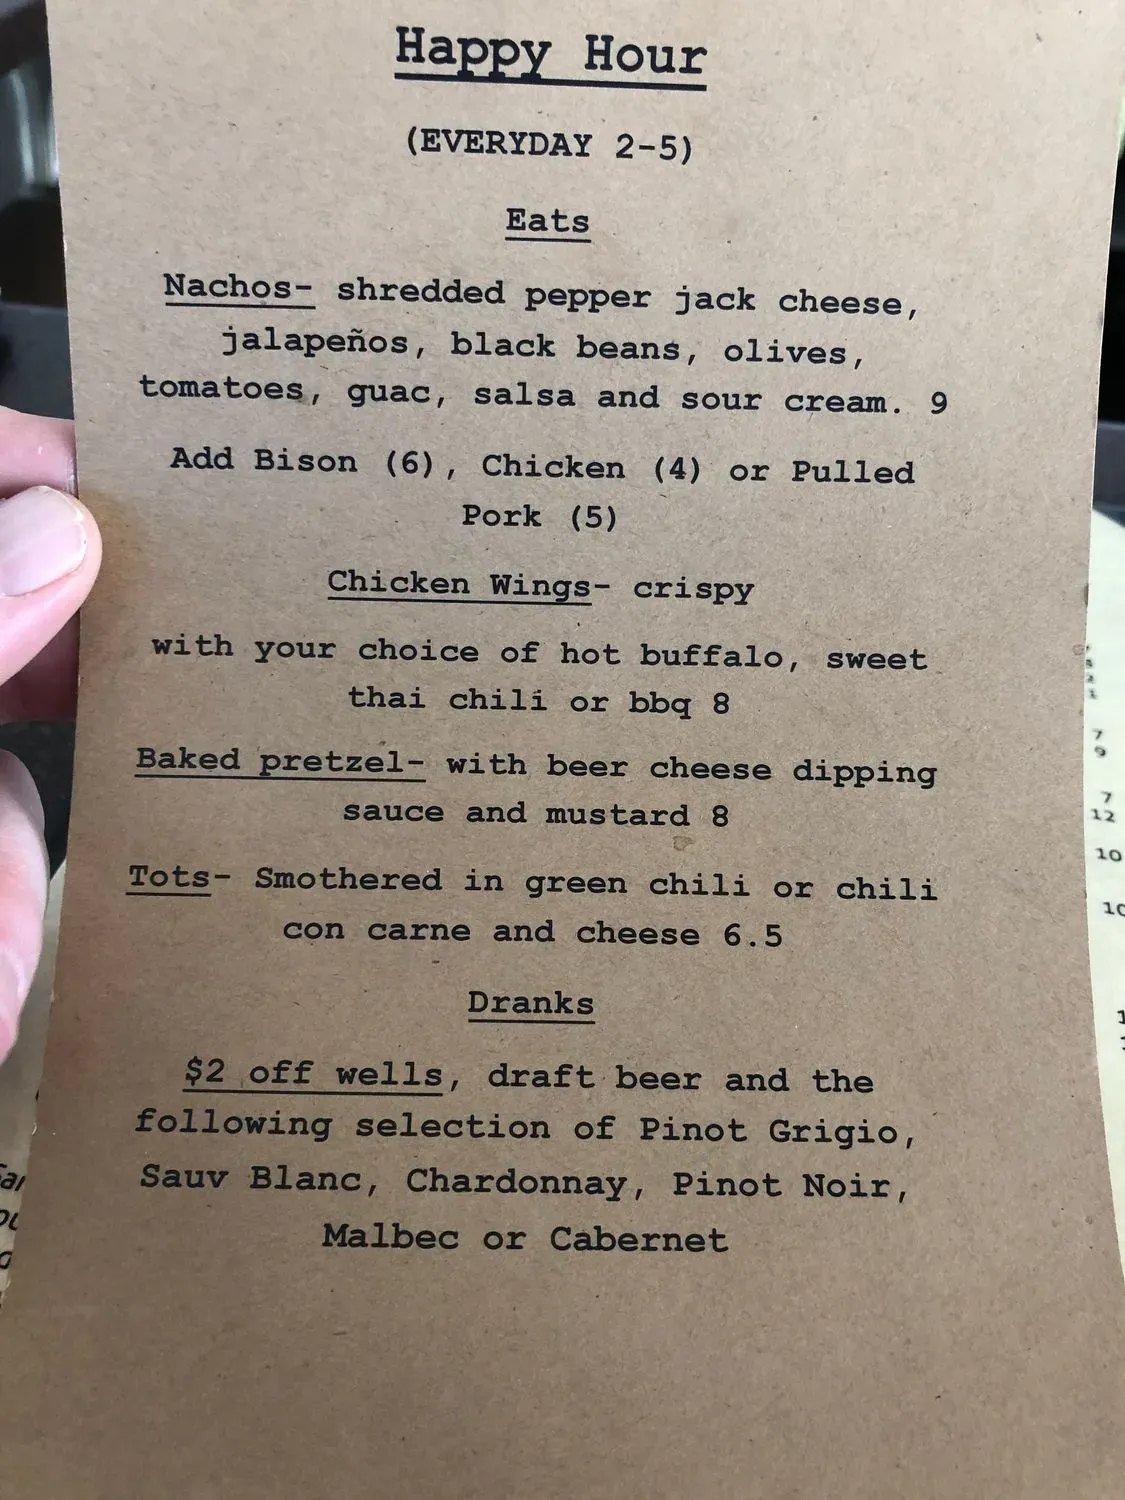 Happy Hour
(EVERYDAY 2-5)
Eats
Nachos- shredded pepper jack cheese,
jalapeños, black beans, olives,
tomatoes, guac, salsa and sour cream. 9
Add Bison (6), Chicken (4) or Pulled
Pork (5)
Chicken Wings- crispy
with your choice of hot buffalo, sweet
thai chili or bbq 8
Baked pretzel- with beer cheese dipping
sauce and mustard 8
Tots- Smothered in green chili or chili
con carne and cheese 6.5
Dranks
$2 off wells, draft beer and the
following selection of Pinot Grigio,
Sauv Blanc, Chardonnay, Pinot Noir,
Malbec or Cabernet
7
9
7
12
10